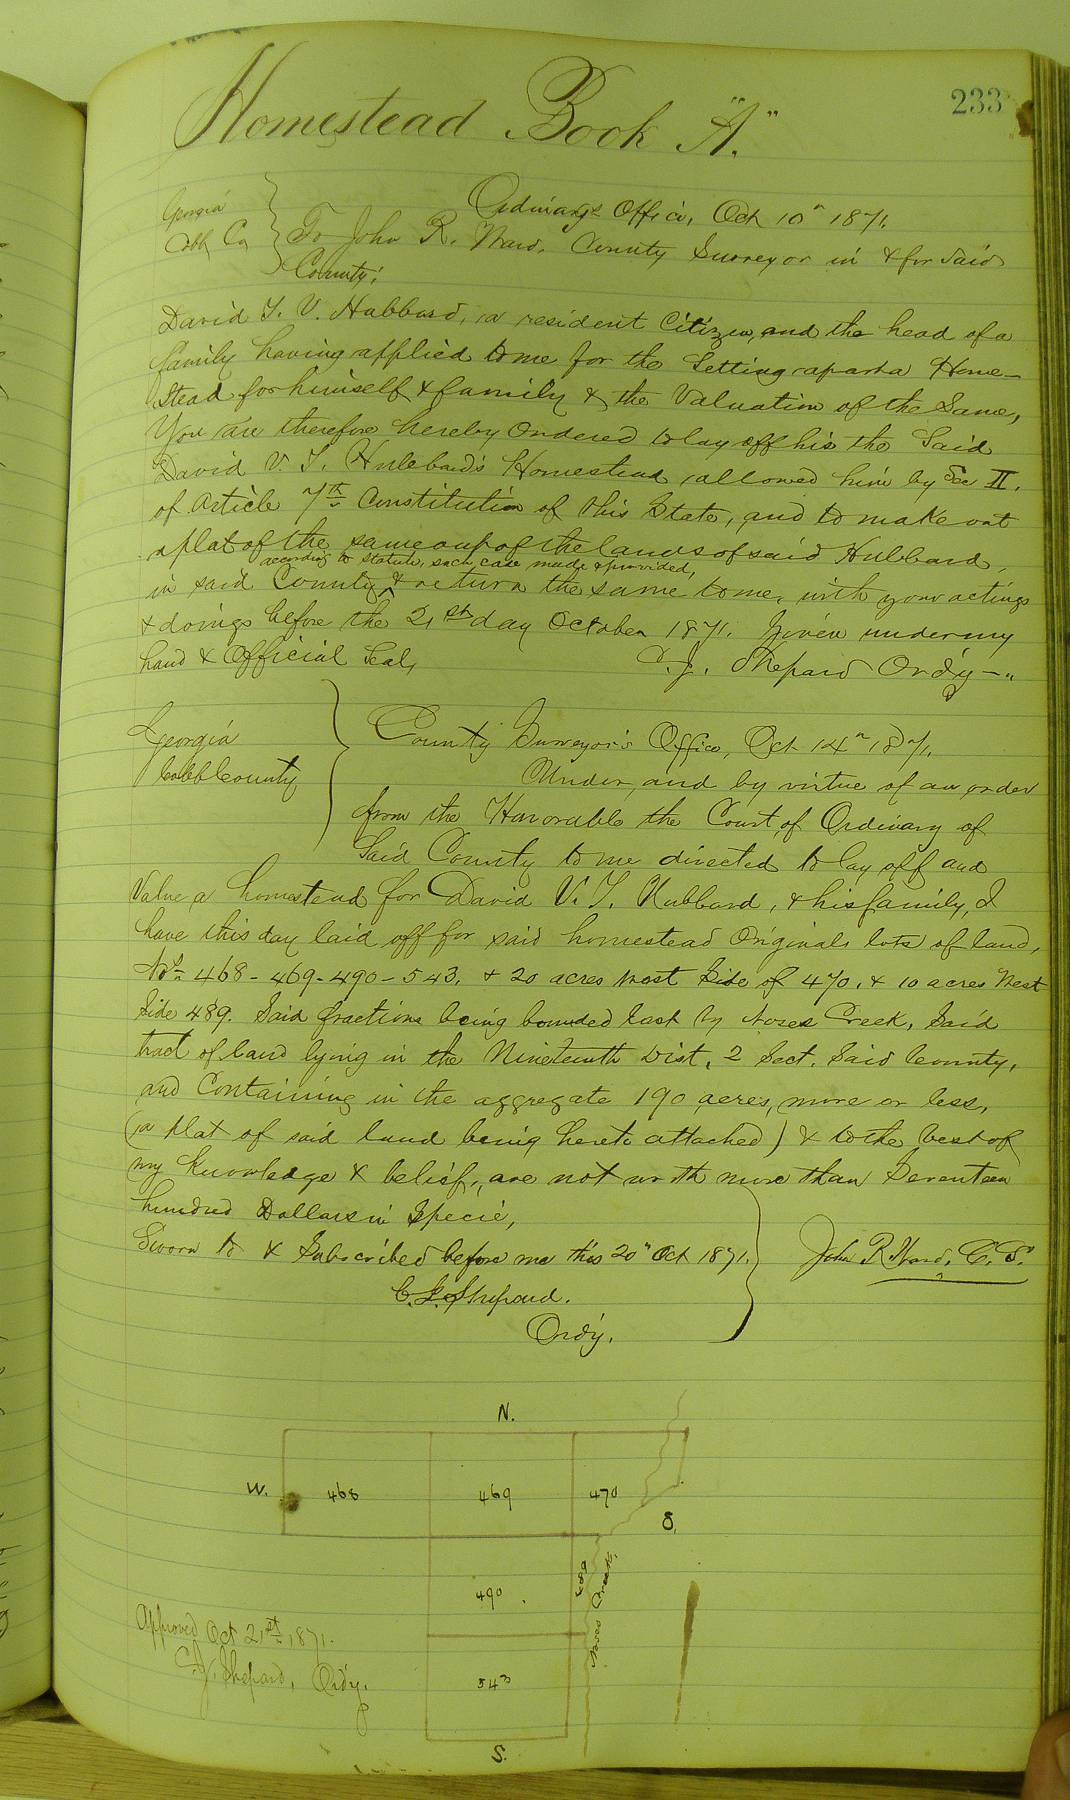 233
Homestead Book "A."
Georgia
Cobb Co
Ordinary's Office, Oct 10" 1871.
To John R. Ward. County Surveyor in & for said
County:
David T. V. Hubbard, a resident Citizen, and the head of a
family having applied to me for the Setting apart a Home-
stead for himself & family & the Valuation of the Same,
You are therefore hereby Ordered to lay off his the Said
David V. T. Hubbard's Homestead allowed him by Sec II.
of Article 7th Constitution of this State, and to make out
a plat of the same out of the lands of said Hubbard,
according to statute, such case made & provided,
in said County & return the same to me, with your actings
& doings before the 21st day October 1871. Given under my
hand & Official Seal,
C. J. Shepard Ord'y
Georgia
Cobb County
County Surveyor's Office, Oct 14" 1871.
Under, and by virtue of an order
from the Honorable the Court of Ordinary of
Said County to me directed to lay off and
Value a homestead for David V. T. Hubbard, & his family, I
have this day laid off for said homestead Originals lots of land,
Nos 468-469-490-543. & 20 acres West Side of 470. & 10 acres West
Side 489. Said fractions being bounded East by Noses Creek, Said
tract of land lying in the Nineteenth Dist, 2 Sect. Said County,
and Containing in the aggregate 190 acres, more or less,
(a Plat of said land being hereto attached) & to the best of
my Knowledge & belief, are not worth more than Seventeen
hundred Dollars in Specie,
Sworn to & Subscribed before me this 20" Oct 1871.
John R Ward, C. S.
C. J. Shepard.
Ordy.
N.
W.
468
469
470
490
489
Noses Creek.
543
S.
Approved Oct 21st 1871.
C. J. Shepard, Ordy.